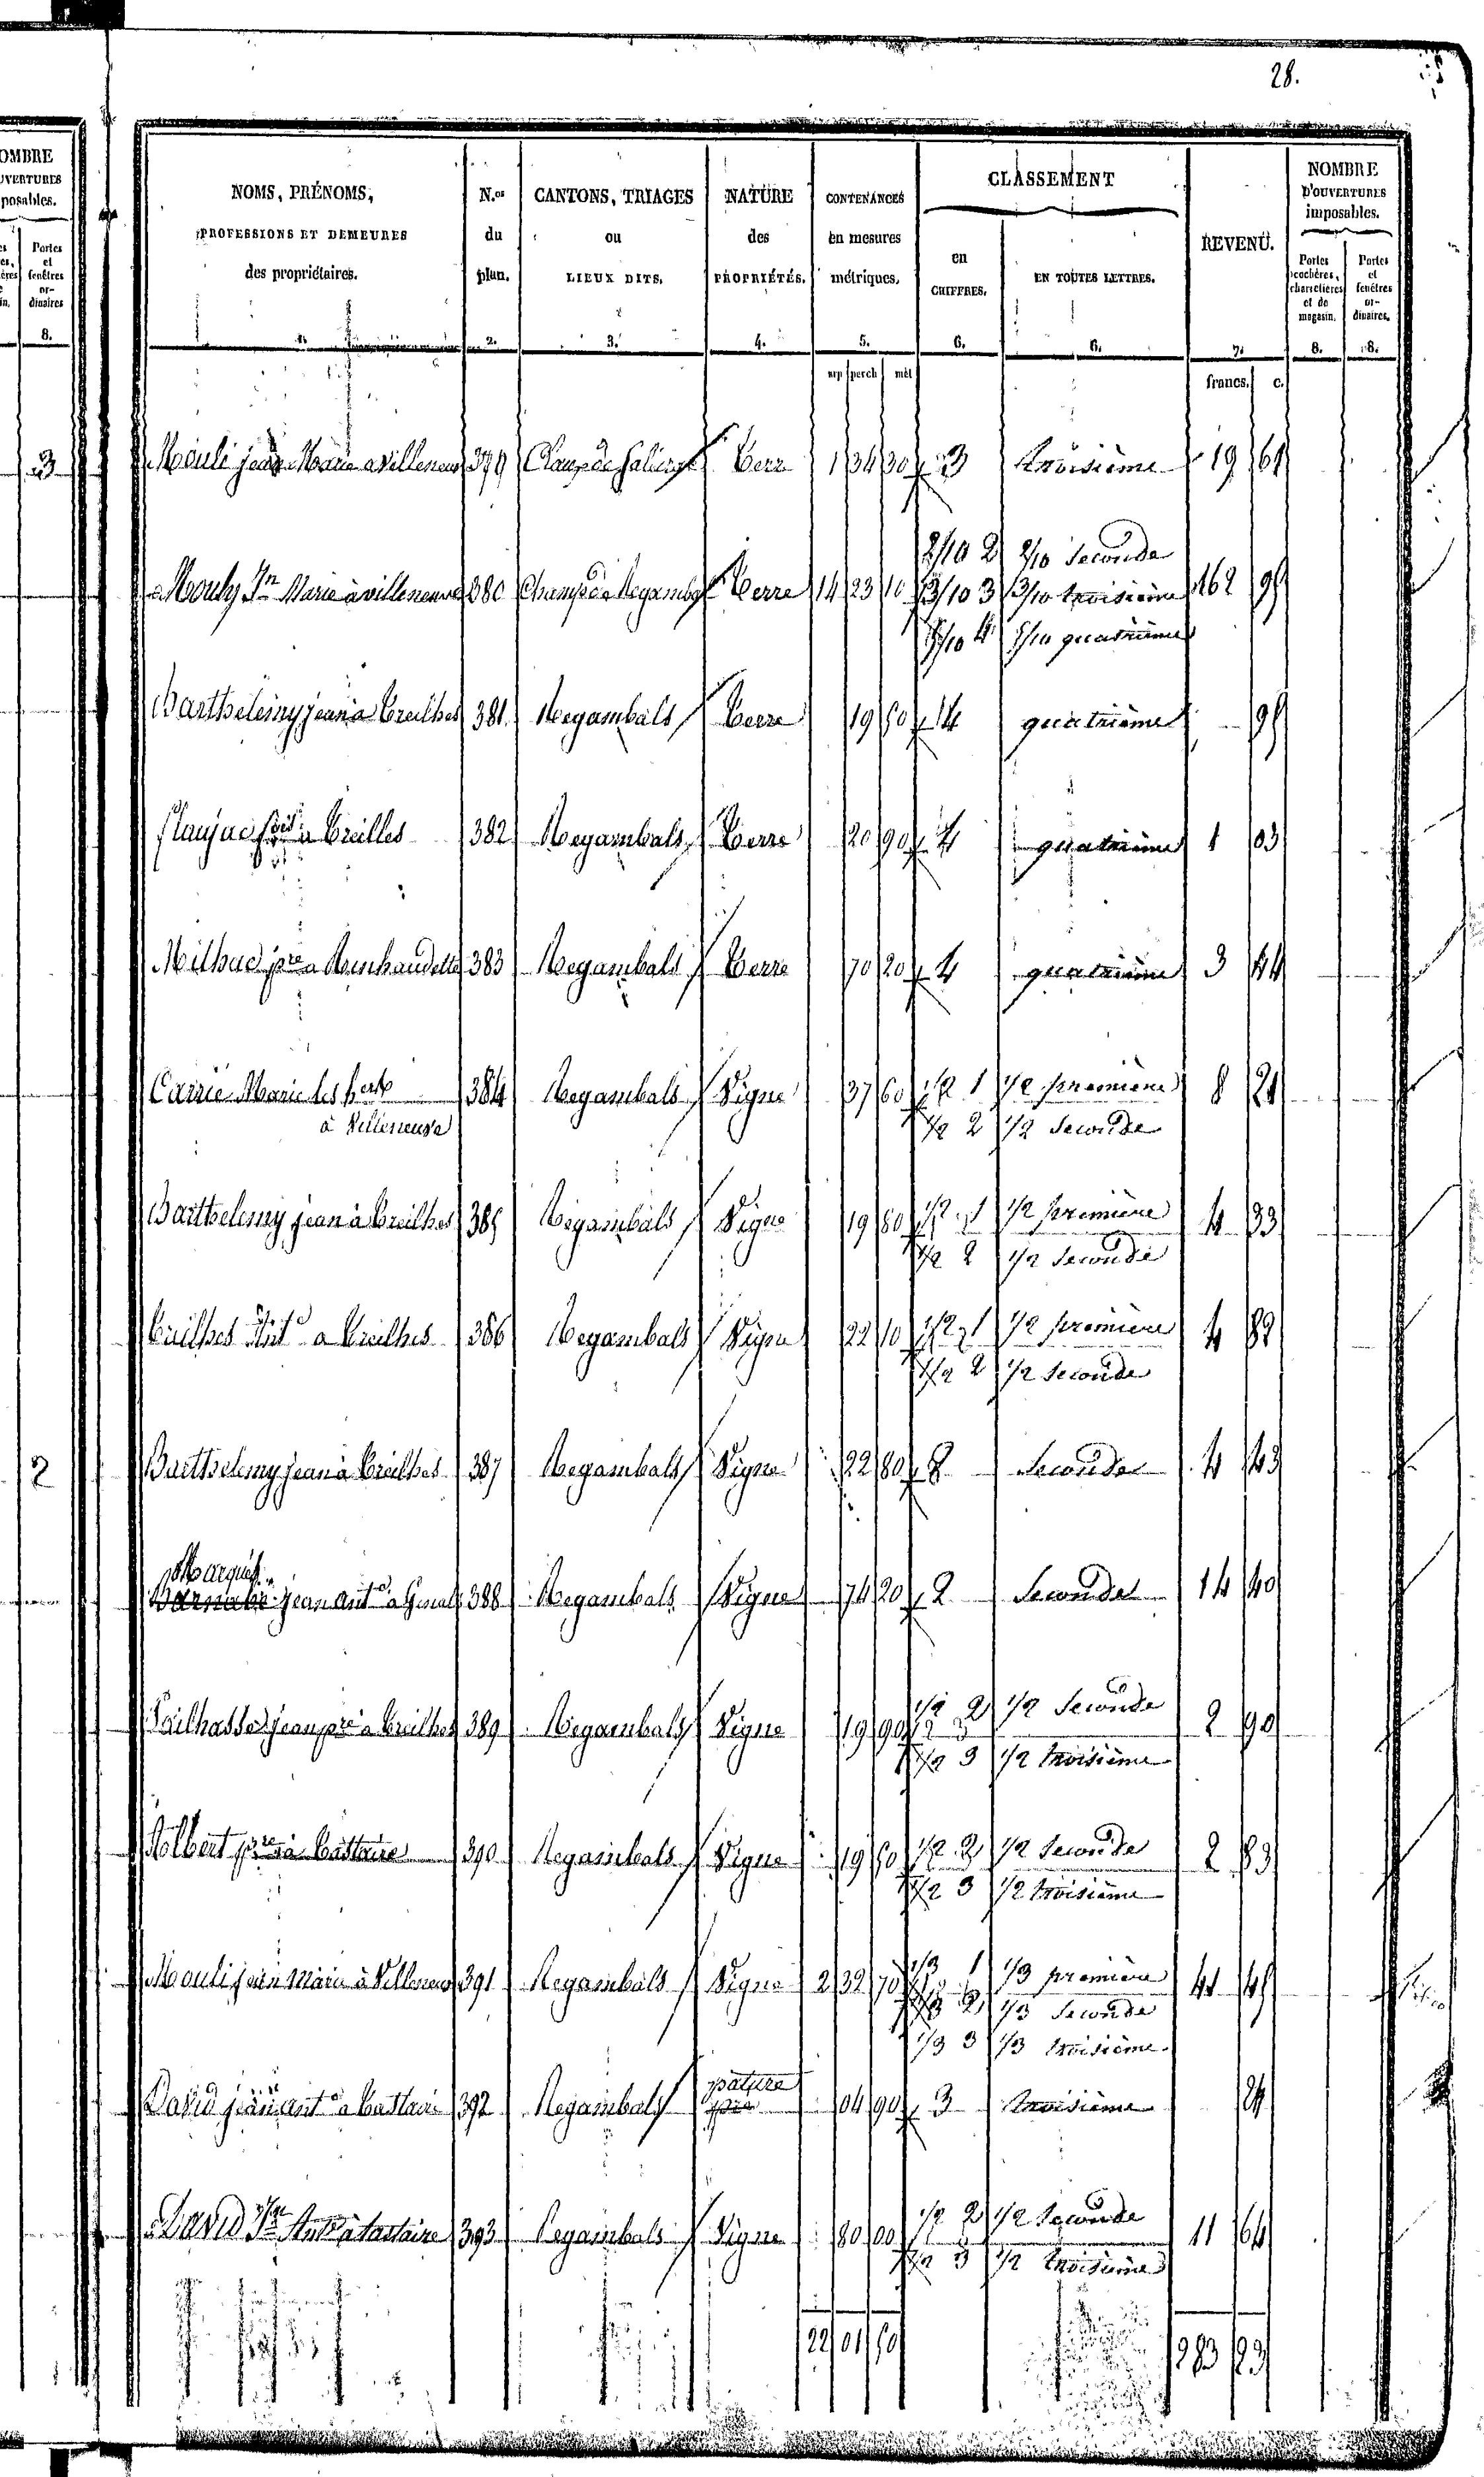 28.
OMBRE
UVERTURES
posables.
Portes
et
fenêtres
or-
dinaires
8.
3
2
NOMS, PRÉNOMS, N.os CANTONS, TRIAGES NATURE CONTENANCES CLASSEMENT REVENU. NOMBRE
D'OUVERTURES
imposables.
PROFESSIONS ET DEMEURES du ou des en mesures
des propriétaires. plan. LIEUX DITS. PROPRIÉTÉS. métriques. en CHIFFRES. EN TOUTES LETTRES.
Portes cochères, charretières et de magasin. Portes et fenêtres or- dinaires.
1. 2. 3. 4. 5. 6. 6. 7. 8. 8.
arp perch mèt francs. c.
Mouli jean Marie a villeneuve 379 Champ de Terre 1 34 30 3 troisième 19 61
2/10 2 2/10 Seconde
Mouly Jn Marie à villeneuve 380 Champ de Negambals Terre 14 23 10 3/10 3 3/10 troisième 162 95
5/10 4 5/10 quatrième
Barthelemy jean a Treilhes 381 Negambals Terre 19 50 4 quatrième 95
flaujac a Treilles 382 Negambals Terre 20 90 4 quatrième 1 03
Milhac pre a 383 Negambals Terre 70 20 4 quatrième 3 44
Carrie Marie les hers 384 Negambals Vigne 37 60 1/2 1 1/2 première 8 21
à Villeneuve 1/2 2 1/2 Seconde
Barthelemy jean à Treilhes 385 Negambals Vigne 19 80 1/2 1 1/2 première 4 33
1/2 2 1/2 Seconde
Treilhes Ante a Treilhes 386 Negambals Vigne 22 10 1/2 1 1/2 première 4 82
1/2 2 1/2 Seconde
Barthelemy jean à Treilhes 387 Negambals Vigne 22 80 2 Seconde 4 43
Marques
Barnabé jean ante a 388 Negambals Vigne 74 20 2 Seconde 14 40
1/2 2 1/2 Seconde
jean pre a Treilhes 389 Negambals Vigne 19 90 2 90
1/2 3 1/2 troisième
Albert pre à Castlaire 390 Negambals Vigne 19 50 1/2 2 1/2 Seconde 2 83
1/2 3 1/2 troisième
Mouli jean marie à Villeneuve 391 Negambals Vigne 2 32 70 1/3 1 1/3 première 41 45
1/3 2 1/3 Seconde
1/3 3 1/3 troisième
pature
David jean ante a Castlaire 392 Negambals 04 90 3 troisième 24
David Jn Ante à tastaire 393 Negambals Vigne 80 00 1/2 2 1/2 Seconde 11 64
1/2 3 1/2 troisième
22 01 50 283 23